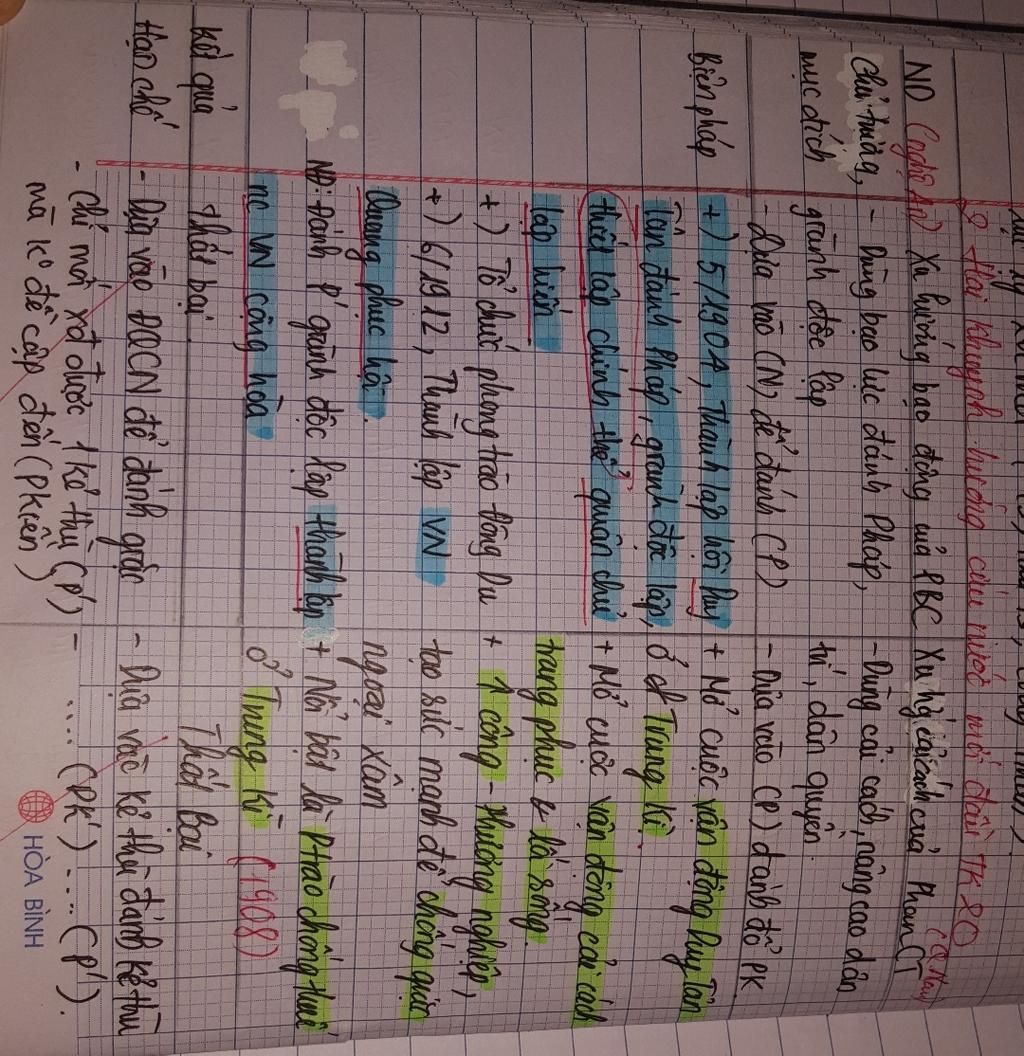 2 Hai khuynh hướng cứu nước mới đầu TK 20
ND (Nghệ An) Xu hướng bạo động của PBC
Xu hg cải cách của Phan CT (Q Nam)
Chủ trương, mục đích
- Dùng bạo lực đánh Pháp,
giành độc lập
- Dựa vào (N) để đánh (P)
- Dùng cải cách, nâng cao dân
trí, dân quyền.
- Dựa vào (P) đánh đổ PK
Biện pháp
+) 5/1904, Thành lập hội Duy
Tân đánh Pháp, giành độc lập,
thiết lập chính thể quân chủ
lập hiến
+) Tổ chức phong trào Đông Du
+) 6/1912, Thành lập VN
Quang phục hội.
NĐ: Đánh P' giành độc lập thành lập
nc VN cộng hòa
+ Mở cuộc vận động Duy Tân
ở Trung Kì.
+ Mở cuộc vận động cải cách
trang phục & lối sống.
+ 1 công - thương nghiệp,
tạo sức mạnh để chống giặc
ngoại xâm
+ Nổi bật là Ptrào chống thuế
ở Trung Kì (1908)
kết quả
Thất bại
Thất bại
Hạn chế
- Dựa vào ĐQCN để đánh giặc
- Chỉ mới xđ được 1 kẻ thù (P')
mà k° đề cập đến (Pkiến)
- Dựa vào kẻ thù đánh kẻ thù
- .... (PK) .... (P').
HÒA BÌNH